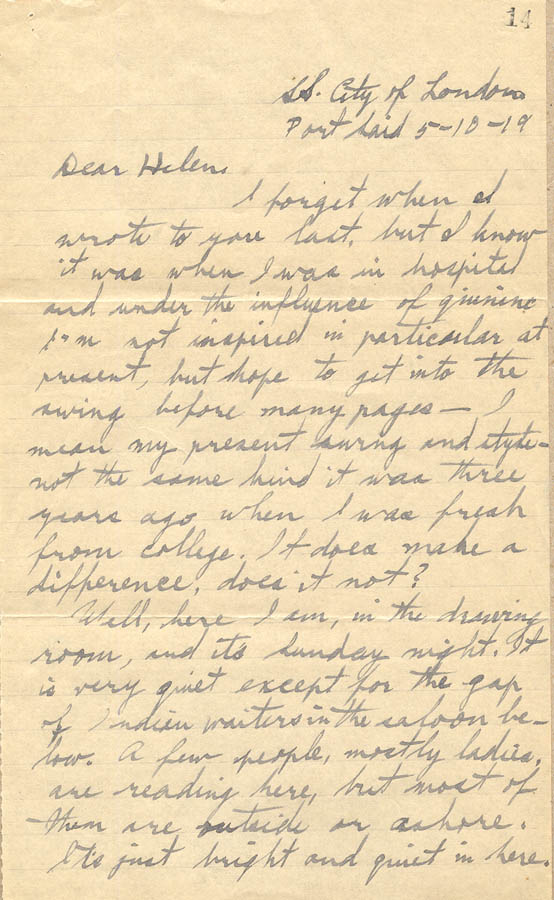 14
S.S. City of London
Port Said 5-10-19
Dear Helen,
I forget when I
wrote to you last, but I know
it was when I was in hospital
and under the influence of quinine
I'm not inspired in particular at
present, but hope to get into the
swing before many pages — I
mean my present swing and style -
not the same kind it was three
years ago when I was fresh
from college. It does make a
difference, does it not?
Well, here I am, in the drawing
room, and its Sunday night. It
is very quiet except for the gap
of Indian waiters in the saloon be-
low. A few people, mostly ladies,
are reading here, but most of
them are outside or ashore.
It's just bright and quiet in here.